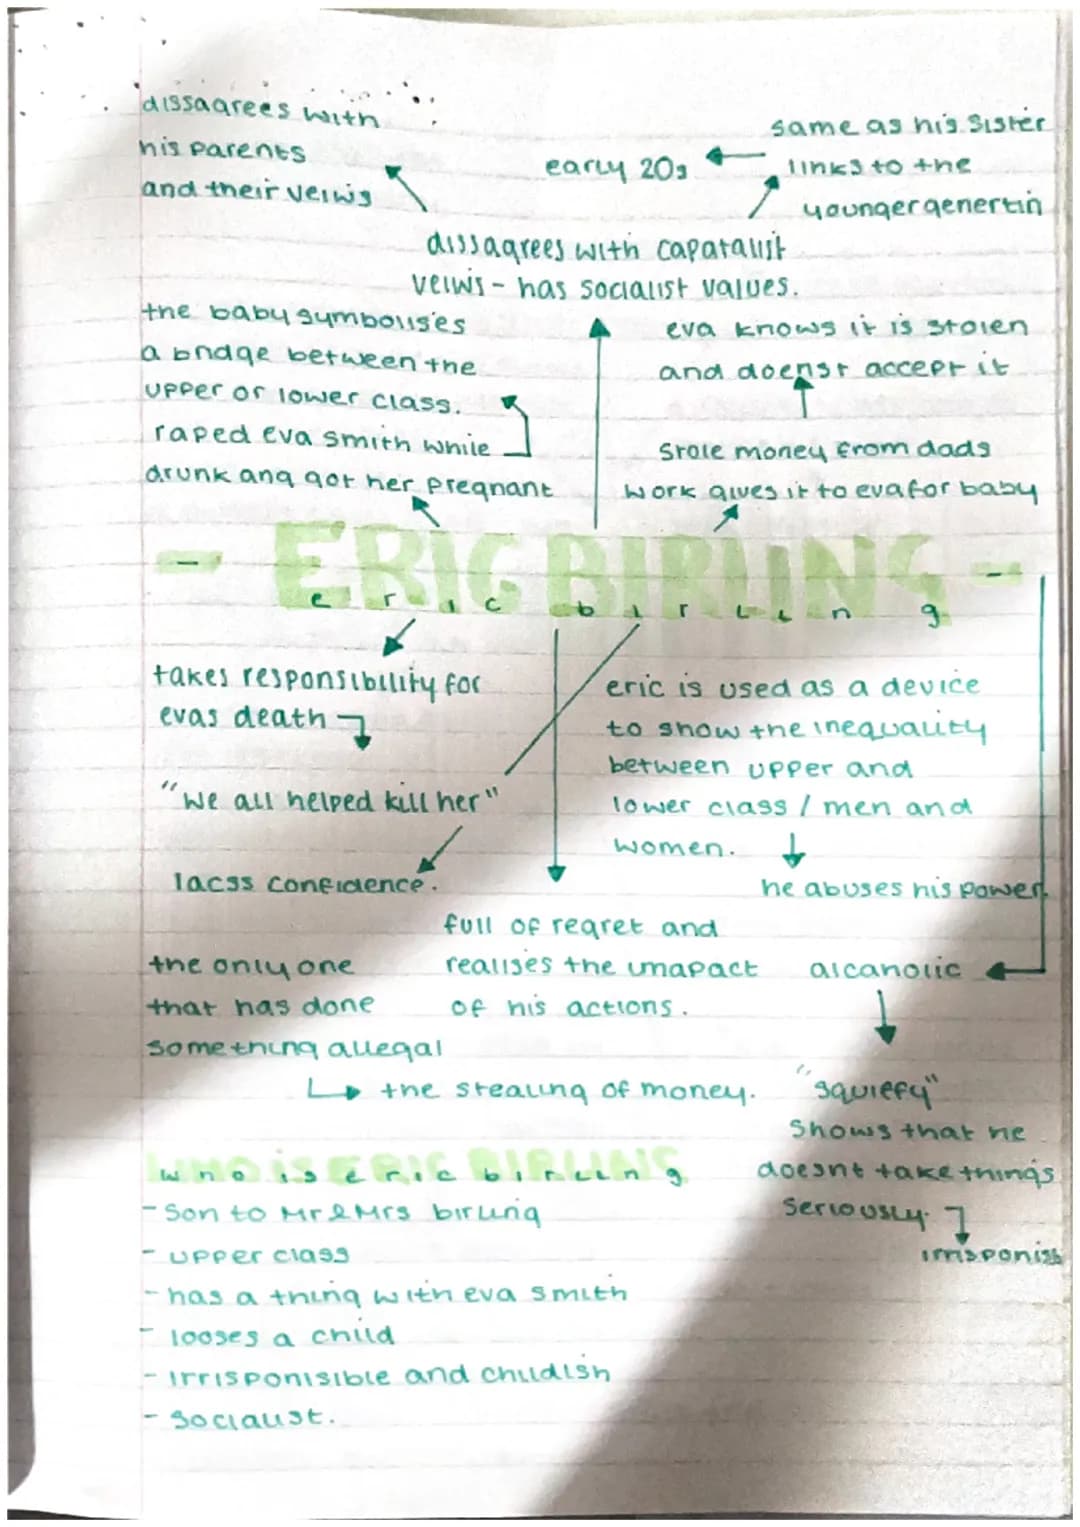 dissagrees with
his parents
and their veiws
early 20s
same as his sister
links to the
younger genertin
dissagrees with capatalist
veiws - has socialist values.
the baby symbolises
a bridge between the
upper or lower class.
raped eva smith while
drunk and got her pregnant
eva knows it is stolen
and doenst accept it
stole money from dads
work gives it to eva for baby
- ERIC BIRLING -
eric birling
takes responsibility for
evas death
"we all helped kill her"
lacss confidence.
eric is used as a device
to show the inequality
between upper and
lower class / men and
women.
he abuses his power.
full of regret and
realises the imapact
of his actions.
the only one
that has done
something allegal
the stealing of money.
alcaholic
"squiffy"
shows that he
doesnt take things
seriously.
WHO IS ERIC BIRLING
who is eric birling
- Son to Mr & Mrs birling
- upper class
- has a thing with eva smith
- looses a child
- irrisponisible and childish
- socialist.